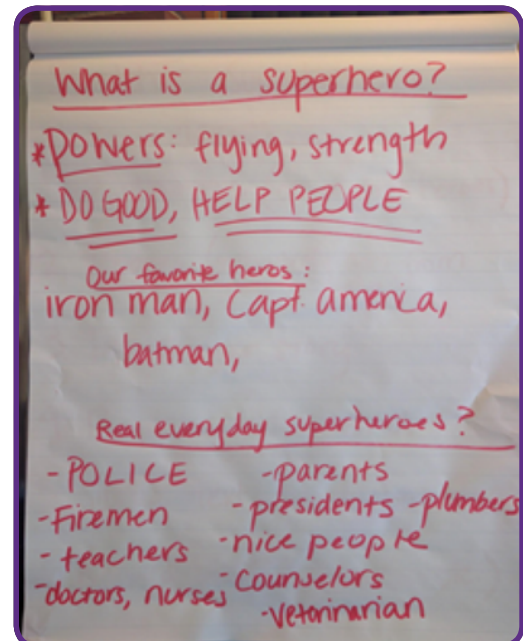 What is a superhero?
*Powers: flying, strength
* DO GOOD, HELP PEOPLE
Our favorite heros:
iron man, Capt. america,
batman,
Real everyday superheroes?
- POLICE
- Firemen
- teachers
- doctors, nurses
- parents
- presidents - plumbers
- nice people
- Counselors
- Vetorinarian